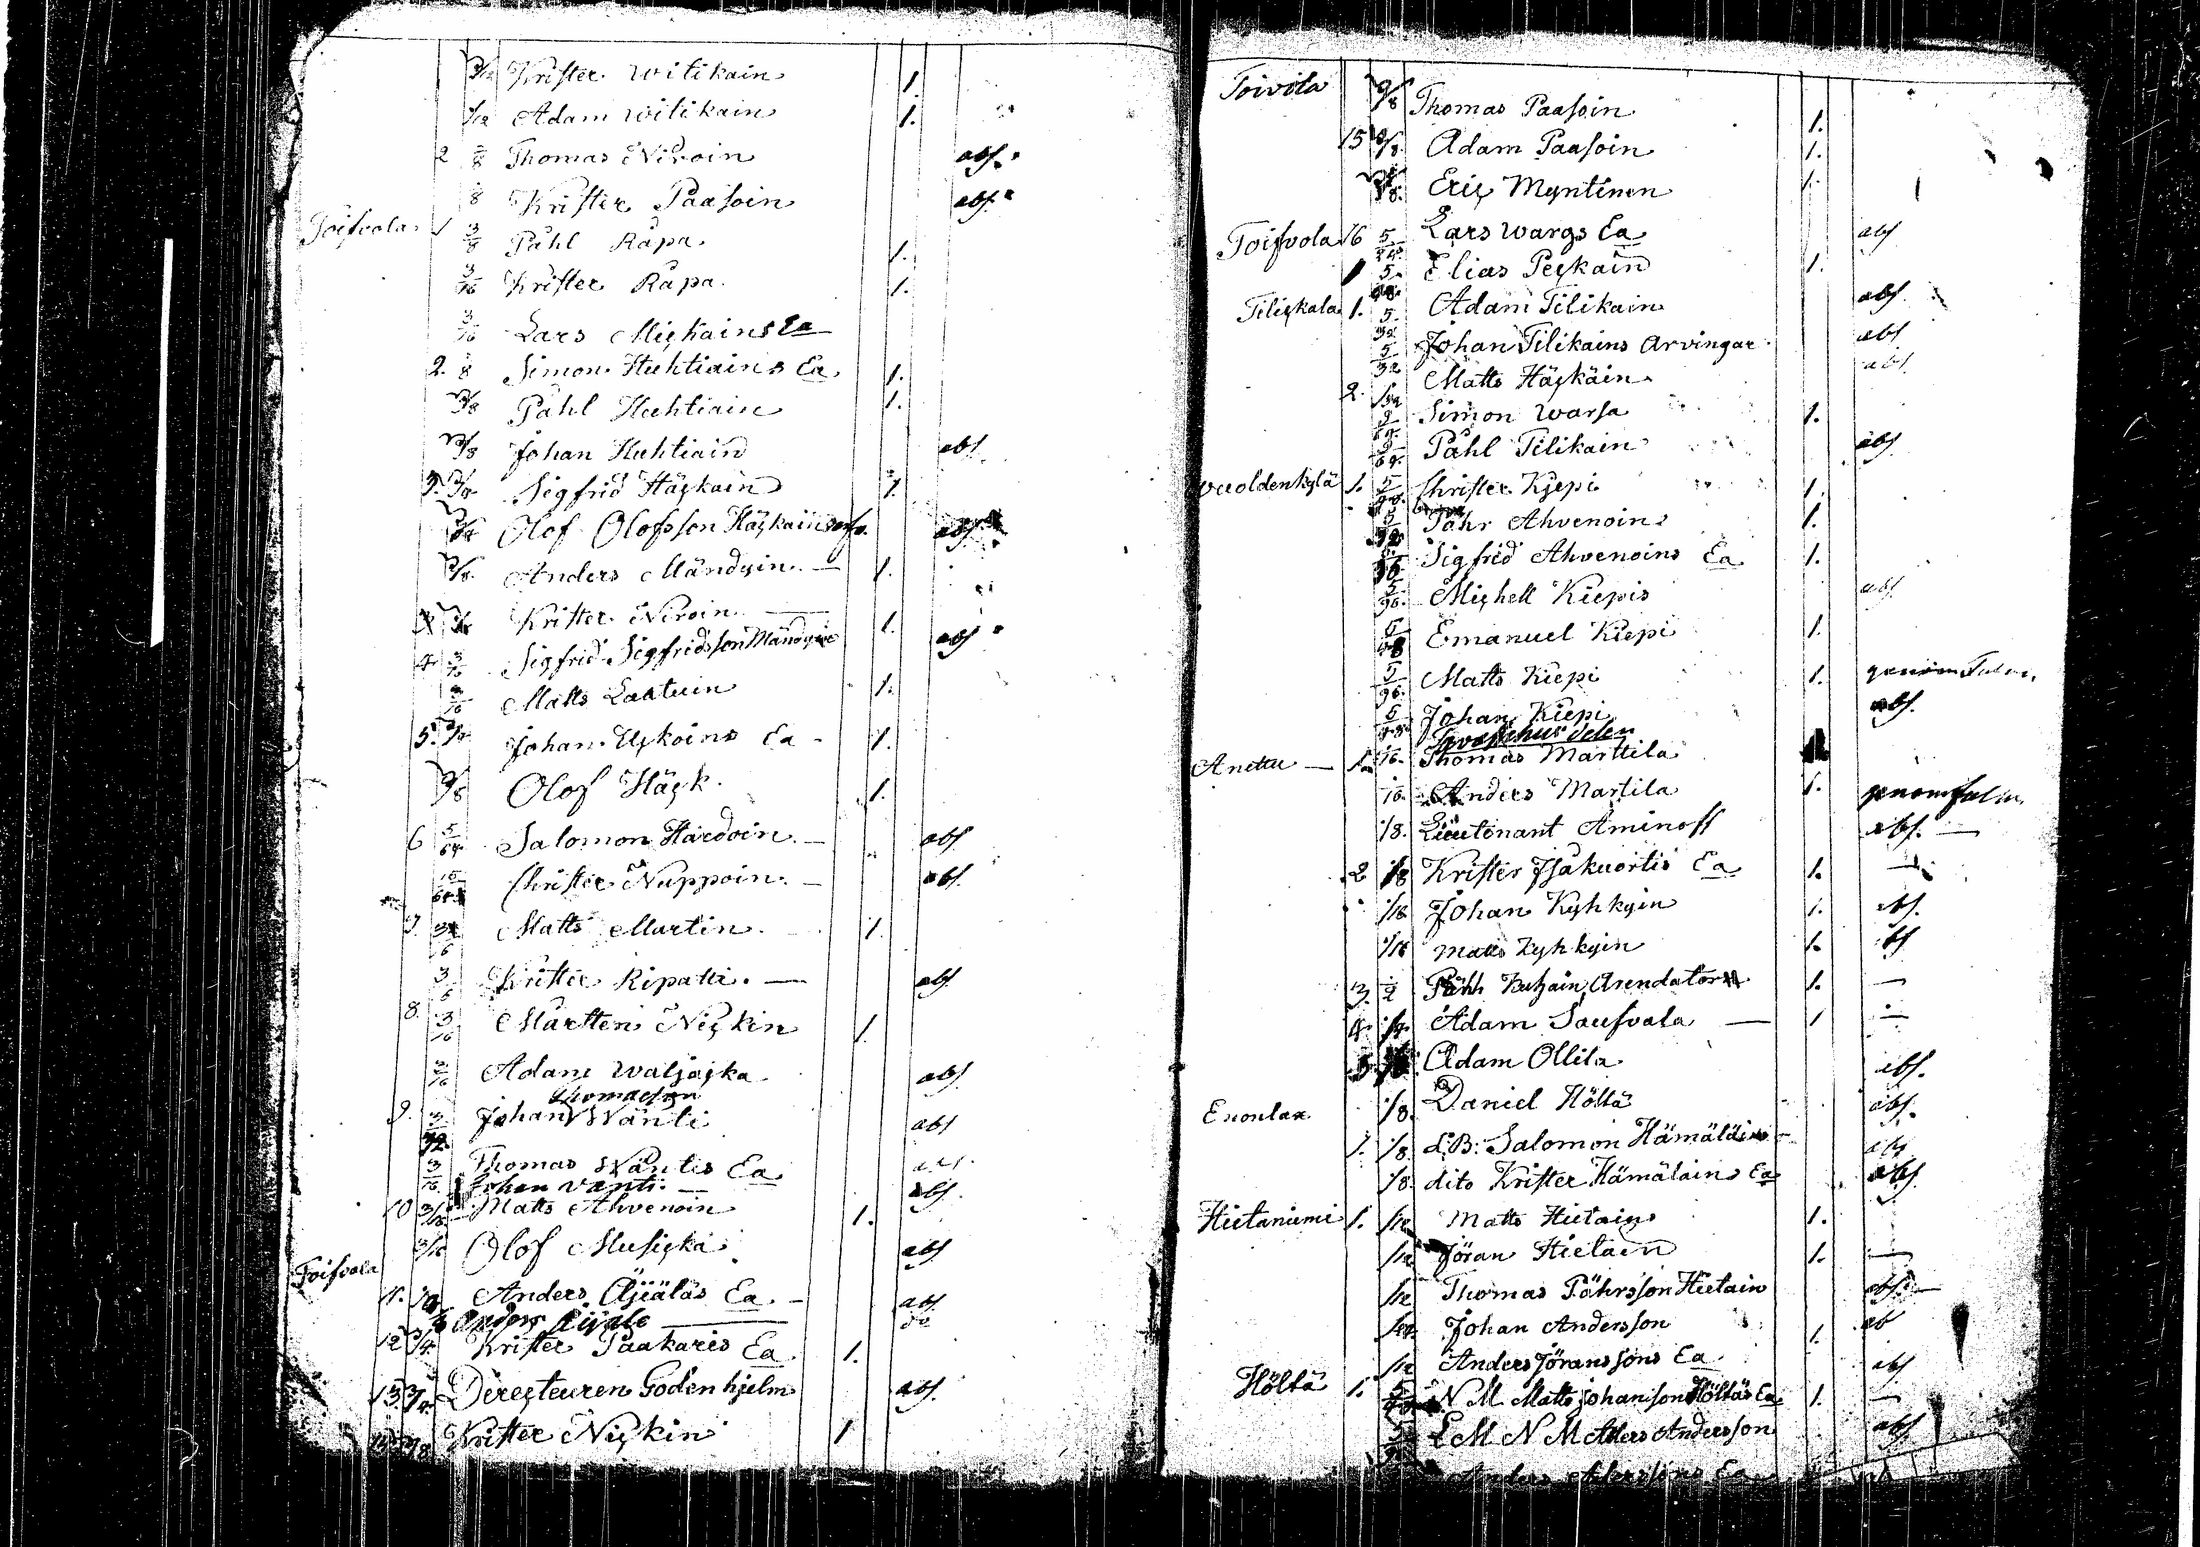 3/12 Krister Witikain 1.
1/12 Adam Witikain 1.
2 3/8 Thomas Niroin abs.
1/8 Krister Paasoin abs.
Toifvola 1 3/8 Påhl Rapa 1.
3/16 Krister Rapa 1.
3/16 Lars Miçkains Ea
2. 1/8 Simon Huhtiains Ea 1.
3/8 Påhl Huhtiain 1.
3/8 Johan Huhtiain abs.
3. Sigfrid Häçkain 1.
Olof Olofsson Häçkain abs.
3/8. Anders Mändyin — 1.
Krister Niroin — 1.
4 3/16 Sigfrid Sigfridsson Mändyin abs
3/16 Matts Laatuin 1.
5. Johan Uçkoins Ea 1.
3/8 Olof Häçk 1.
6 5/64 Salomon Hardoin — abs
15/64 Christer Nuppoin — abs.
7. Matts Martin 1.
Krister Ripatti. — abs
8. 3/16 Mårtten Niçkin 1.
3/16 Adam Waljaçka abs.
Thomasson
9. 3/32 Johan Wänti abs
3/16 Thomas Wäntis Ea abs.
Johan Vänti — abs.
10 3/16 Matts Ahvenoin 1.
3/16 Olof Musiçka abs
Toifvola
11. Anders Äjjäläs Ea — abs.
Anders Äijäle — do
12 3/4 Krister Paakaris Ea 1.
13. 3/4. Direçteuren Godenhjelm abs.
Krister Niçkin 1
Toivila 3/8 Thomas Paasoin 1.
15 3/8. Adam Paasoin 1.
3/8. Eriç Myntinen 1.
Toifvola 16 5/24. Lars Wargs Ea abs
1 5/48. Elias Peçkain 1.
Tiliçkala 1. 5/32 Adam Tilikain abs.
5/32 Johan Tilikains Arvingar abs
2. Matts Häçkäin abs.
Simon Warsa 1.
5/64. Påhl Tilikain abs.
Wuoldenkylä 1. 5/48. Christer Kjepi 1.
Påhr Ahvenoin 1.
Sigfrid Ahvenoins Ea 1.
5/96. Miçhell Kiepis abs
5/48 Emanuel Kiepi 1.
5/96. Matts Kiepi 1. genom
5/48 Johan Kiepi abs.
Anettu — 1. 1/16. Thomas Marttila
1/16. Anders Martila 1. genom
1/8. Lieutenant Aminoff abs. —
2 1/8 Krister Isakuortis Ea 1. —
1/16 Johan Kyhkyin 1. abs.
1/16 Matts Kyhkyin 1. abs
3. 1/2 Påhl Arendator 1. —
4. 1/4. Adam Saufvala — 1 —
5 Adam Ollila abs.
Enonlax 1/8. Daniel Höltä abs.
1. 1/8. d.B: Salomon Hämäläin abs
1/8. dito Krister Hämäläins Ea abs.
Hietaniemi 1. 1/12 Matts Hietain 1.
1/12 Jöran Hietain 1. —
1/12 Thomas Påhrsson Hietain abs. —
1/24. Johan Andersson 1. ab
1/12 Anders Jöranssons Ea abs
Höltä 1. 5/48 N M Matts Johansson Höltäs Ea 1. —
L M N M Anders Andersson abs.
Anders Ea